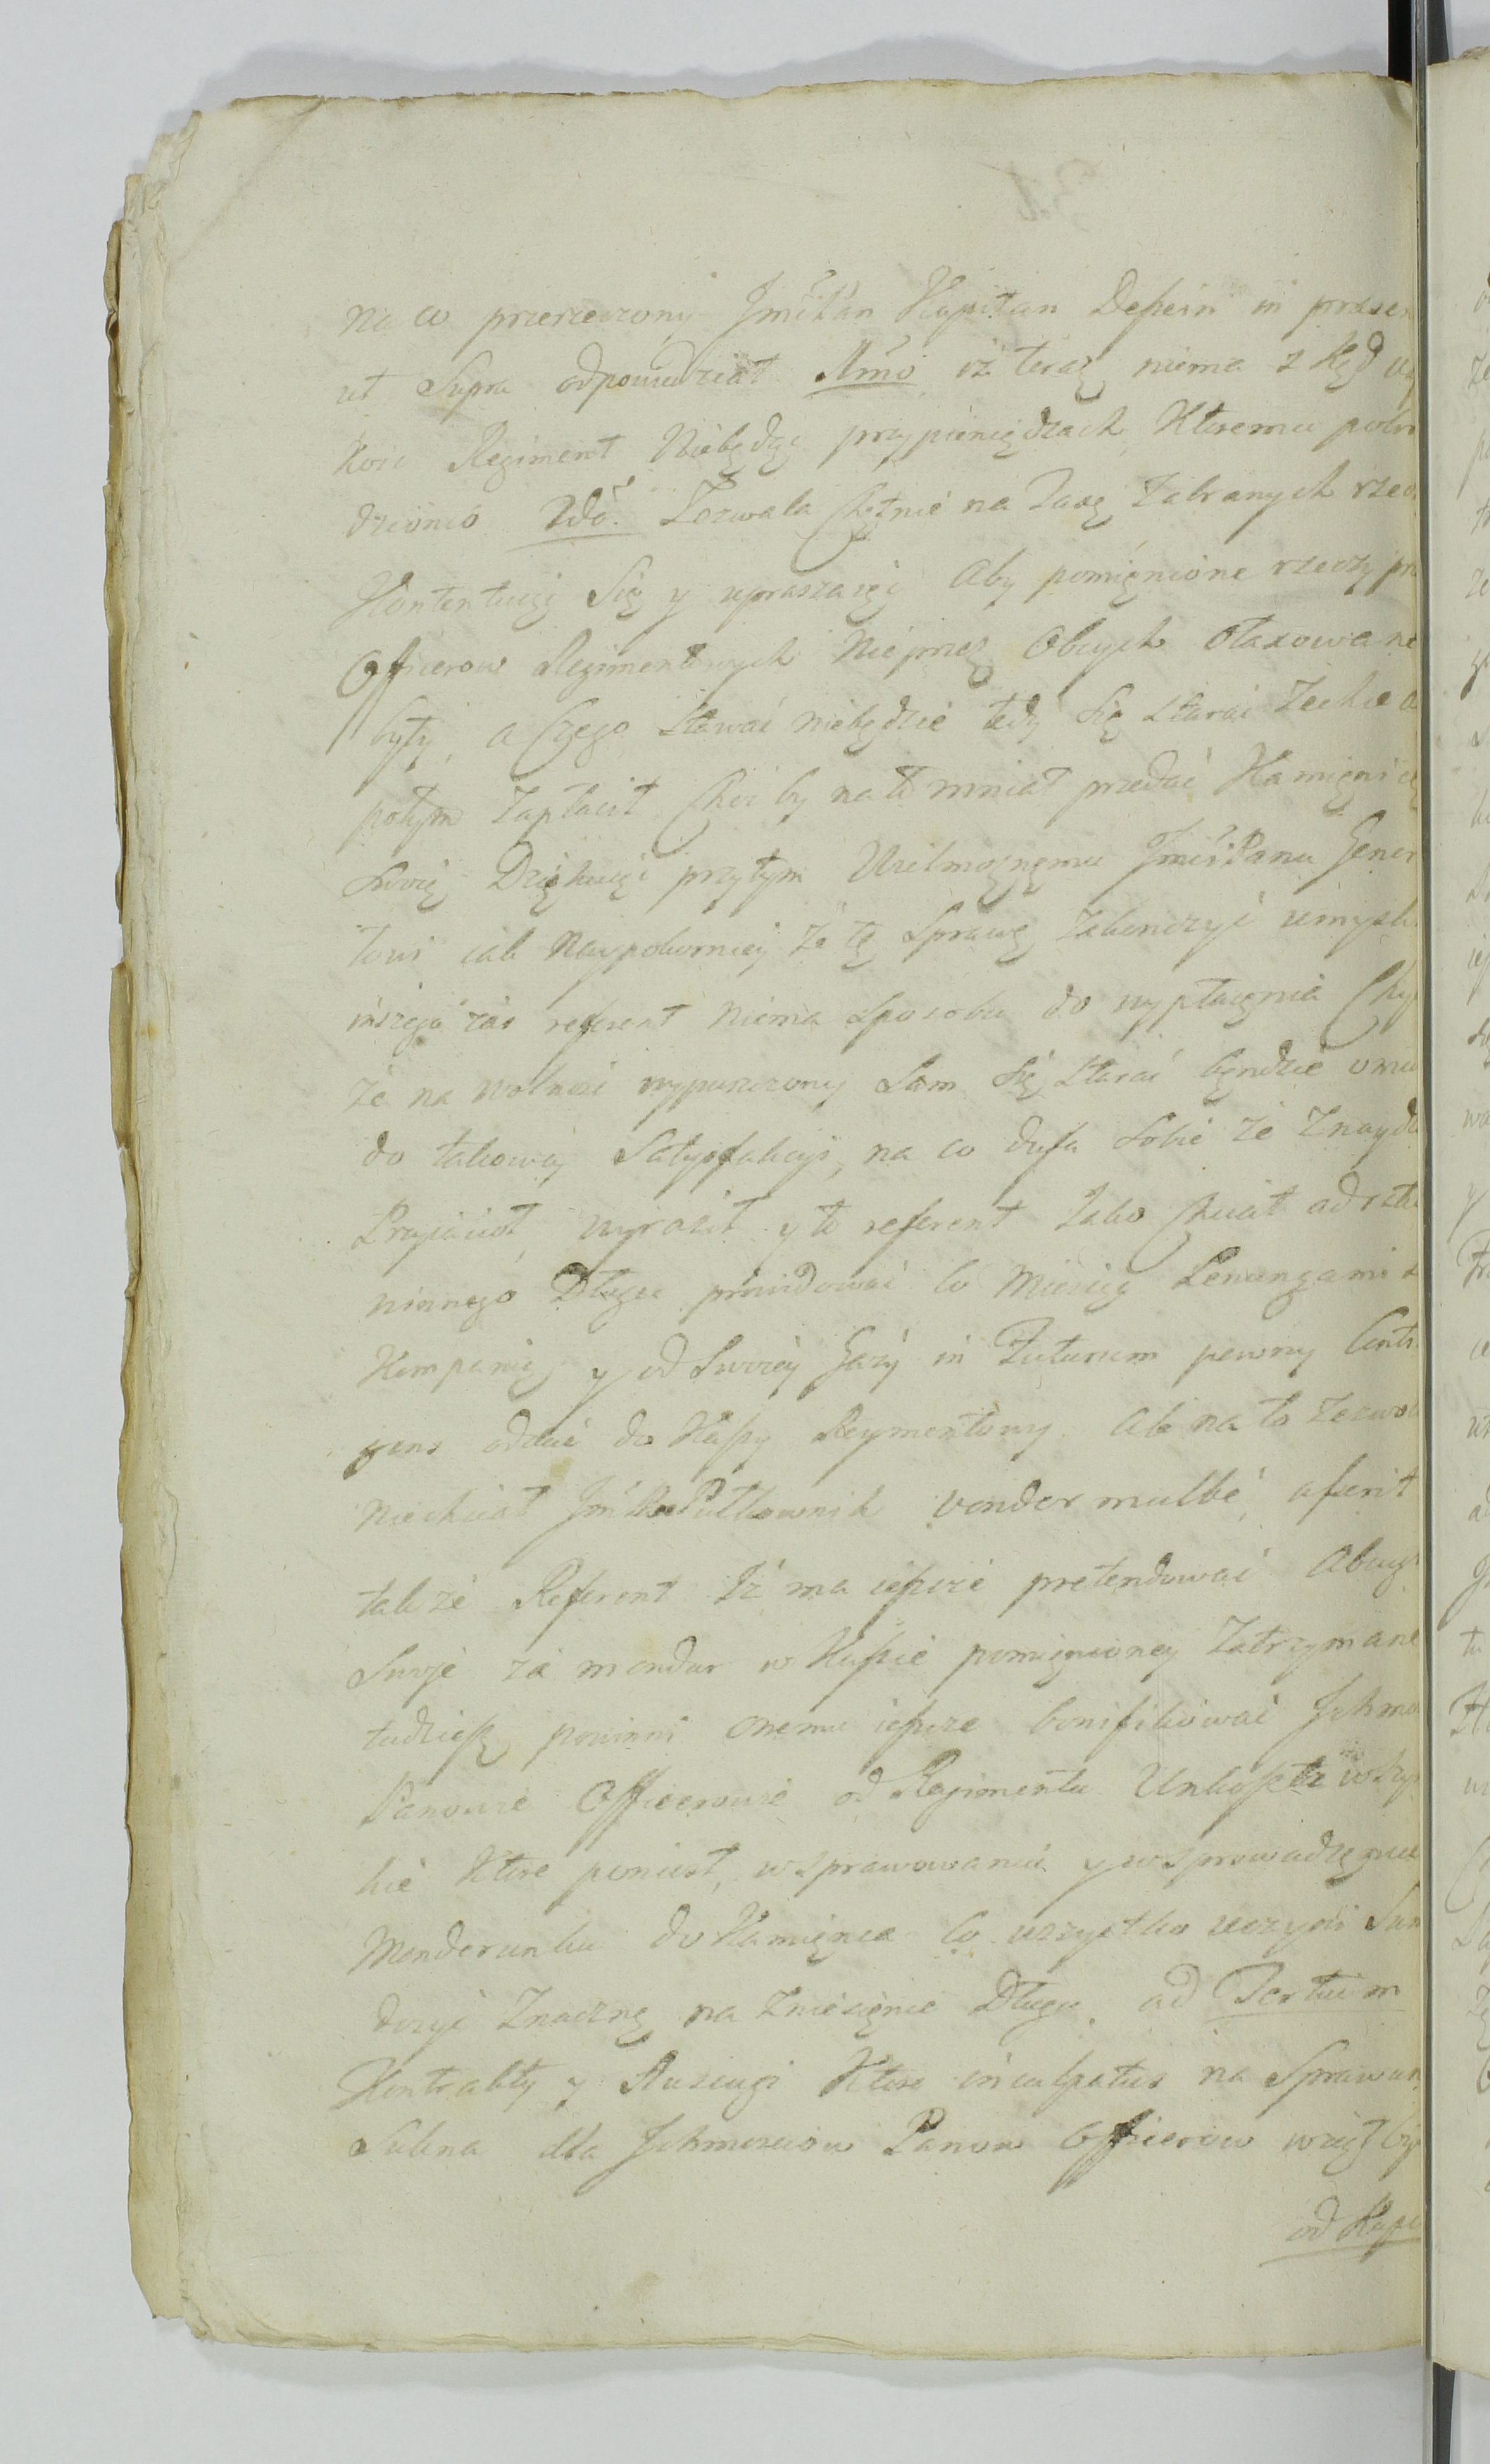 na co przerzeczony JmćPan Kapitan Depein in praesen
ut Supra odpowiedział 1mo iż teraz niema z kąd
koić Regiment Niebędąc przypieniędzach Ktoremu
2do. Zezwala Chętnie na Taxę Zabranych rzec
Kontentuiąc Się y upraszaiąc Aby pomięnione rzeczy prz
Officerow Regimentowych Nieprzez Obcych Otaxowane
były, a Czego Stawać niebędzie tedy Się Starać Zechce a
potym Zapłacił Choc by nato mniał przedać Kamięnicę
Swoię Dziękuiąc przytym Wielmożnęmu JmćiPanu Gener
łowi iak Naypokorniey że tę Sprawę Zakonczyć umysl
inszego zas referent niema Sposobu do wypłacęnia Chyb
że na wolnosc wypuszczony Sam Się Starać będzie
do takowey Satysfakcyi, na co dufa Sobie że Znayd
Przyiacioł, wyraził y to referent Jako Chciał od
ninnego Długu prowidować co Miesiąc Lenungami z
Kompanię y od Swoiey Gaży in Futurum pewny
gens oddać do Kassy Reymentowy Ale na to zezwol
Niechciał Jmć Pułkownik vondermulbe,
także Referent Iż ma ieszcze pretendować Abcug
Swoie za mondur w Kassie pomięnioney Zatrzymane
tudziesz powinni Onemu ieszcze bonifikować Ichmo
Panowie Officerowie od Regimentu Unkoszta wszys
kie Ktore poniosł, wsprawowaniu y wsprowadzęniu
Monderunku do Kamięnca Co wszystko uczyni Sum
dosyć Znaczną na Zniesięnie Długu. ad Tertium
Kontrakty y Auszugi Ktore inculpatus na Sprawun
Sukna dla Ichmosciow Panow Officerow wziął
od Kapi